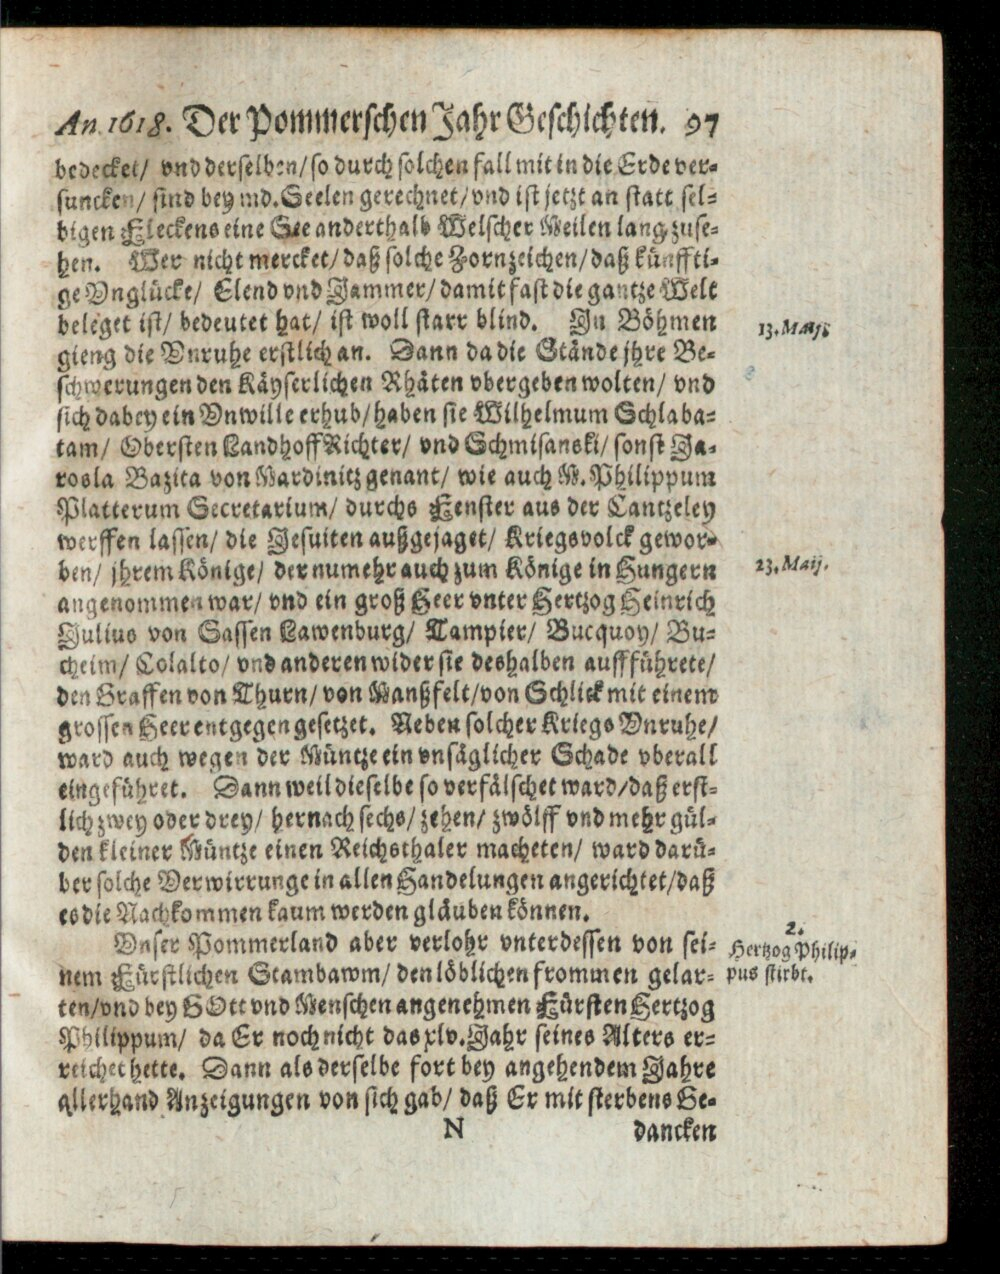 An. 1618. Der Pommerschen Jahr Geschichten. 97
bedecket/ vnd derselben/ so durch solchen fall mit in die Erde ver-
suncken/ sind bey md. Seelen gerechnet/ vnd ist jetzt an statt sel-
bigen Fleckens eine See anderthalb Welscher Meilen lang zuse-
hen. Wer nicht mercket/ daß solche Zornzeichen/ daß künffti-
ge Vnglücke/ Elend vnd Jammer/ damit fast die gantze Welt
beleget ist/ bedeutet hat/ ist woll starr blind. In Böhmen
13. Maij.
gieng die Vnruhe erstlich an. Dann da die Stände jhre Be-
schwerungen den Käyserlichen Rhäten vbergeben wolten/ vnd
sich dabey ein Vnwille erhub/ haben sie Wilhelmum Schlaba-
tam/ Obersten Landhoff Richter/ vnd Schmisanski/ sonst Ja-
rosla Bazita von Mardinitz genant/ wie auch M. Philippum
Platterum Secretarium/ durchs Fenster aus der Cantzeley
werffen lassen/ die Jesuiten außgejaget/ Kriegsvolck gewor-
ben/ jhrem Könige/ der numehr auch zum Könige in Hungern
23. Maij.
angenommen war/ vnd ein groß Heer vnter Hertzog Heinrich
Julius von Sassen Lawenburg/ Tampier/ Bucquoy/ Bu-
cheim/ Colalto/ vnd anderen wider sie deshalben auffführete/
den Graffen von Thurn/ von Manßfelt/ von Schlick mit einem
grossen Heer entgegen gesetzet. Neben solcher Kriegs Vnruhe/
ward auch wegen der Müntze ein vnsäglicher Schade vberall
eingeführet. Dann weil dieselbe so verfälschet ward/ daß erst-
lich zwey oder drey/ hernach sechs/ zehen/ zwölff vnd mehr gül-
den kleiner Müntze einen Reichsthaler macheten/ ward darü-
ber solche Verwirrunge in allen Handelungen angerichtet/ daß
es die Nachkommen kaum werden gläuben können.
Vnser Pommerland aber verlohr vnterdessen von sei-
nem Fürstlichen Stambawm/ den löblichen frommen gelar-
2.
Hertzog Philip-
pus stirbt.
ten/ vnd bey GOtt vnd Menschen angenehmen Fürsten Hertzog
Philippum/ da Er noch nicht das xlv. Jahr seines Alters er-
reichet hette. Dann als derselbe fort bey angehendem Jahre
allerhand Anzeigungen von sich gab/ daß Er mit sterbens Ge-
N
dancken